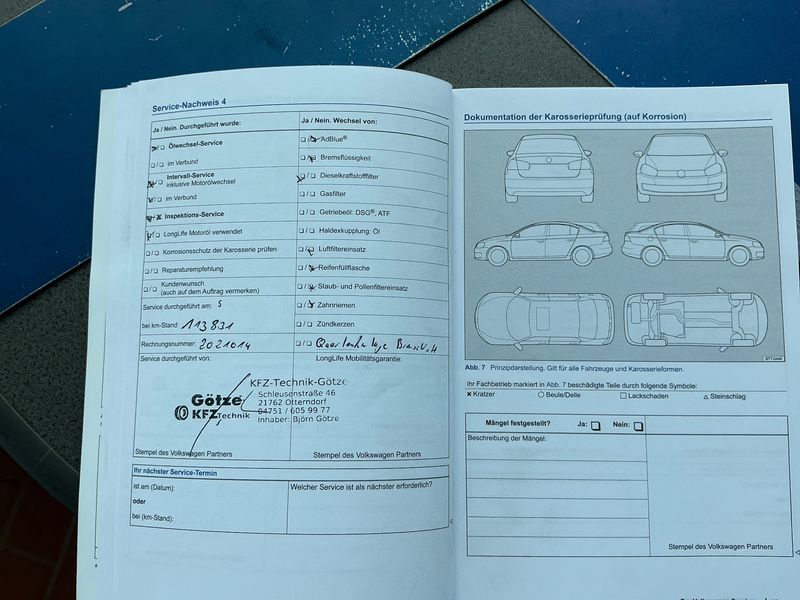 Service-Nachweis 4
Ja / Nein. Durchgeführt wurde:
Ölwechsel-Service
im Verbund
Intervall-Service
inklusive Motorölwechsel
im Verbund
Inspektions-Service
LongLife Motoröl verwendet
Korrosionsschutz der Karosserie prüfen
Reparaturempfehlung
Kundenwunsch
(auch auf dem Auftrag vermerken)
Service durchgeführt am:
bei km-Stand: 113831
Rechnungsnummer: 2021014
Service durchgeführt von:
Ja / Nein. Wechsel von:
AdBlue®
Bremsflüssigkeit
Dieselkraftstofffilter
Gasfilter
Getriebeöl: DSG®, ATF
Haldexkupplung: Öl
Luftfiltereinsatz
Reifenfüllflasche
Staub- und Pollenfiltereinsatz
Zahnriemen
Zündkerzen
LongLife Mobilitätsgarantie:
Götze
KFZTechnik
KFZ-Technik-Götze
Schleusenstraße 46
21762 Otterndorf
04751 / 605 99 77
Inhaber: Björn Götze
Stempel des Volkswagen Partners
Stempel des Volkswagen Partners
Ihr nächster Service-Termin
ist am (Datum):
oder
bei (km-Stand):
Welcher Service ist als nächster erforderlich?
Dokumentation der Karosserieprüfung (auf Korrosion)
Abb. 7 Prinzipdarstellung. Gilt für alle Fahrzeuge und Karosserieformen.
Ihr Fachbetrieb markiert in Abb. 7 beschädigte Teile durch folgende Symbole:
× Kratzer ○ Beule/Delle □ Lackschaden △ Steinschlag
Mängel festgestellt? Ja: Nein:
Beschreibung der Mängel:
Stempel des Volkswagen Partners